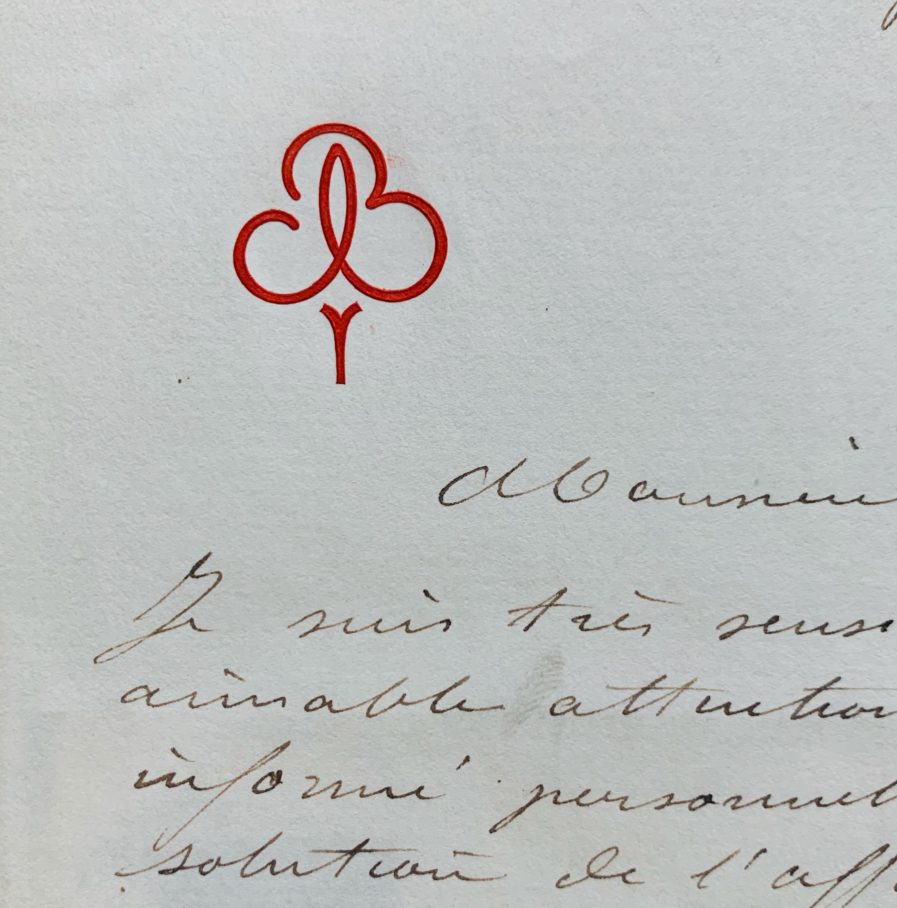 Monsieur
Je suis très sensi
aimable attention
informé personnel
solution de l'affa